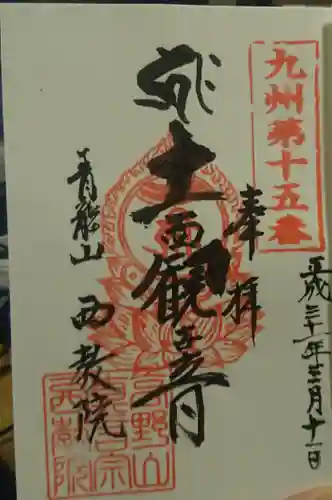 九州第十五番
平成三十一年三月十一日
奉拝
十一面観世音
青龍山 西教院
高野山
真言宗
西教院